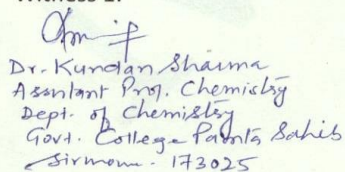 Witness 1:
Dr. Kundan Sharma
Assistant Prof. Chemistry
Dept. of Chemistry
Govt. College Paonta Sahib
Sirmour - 173025